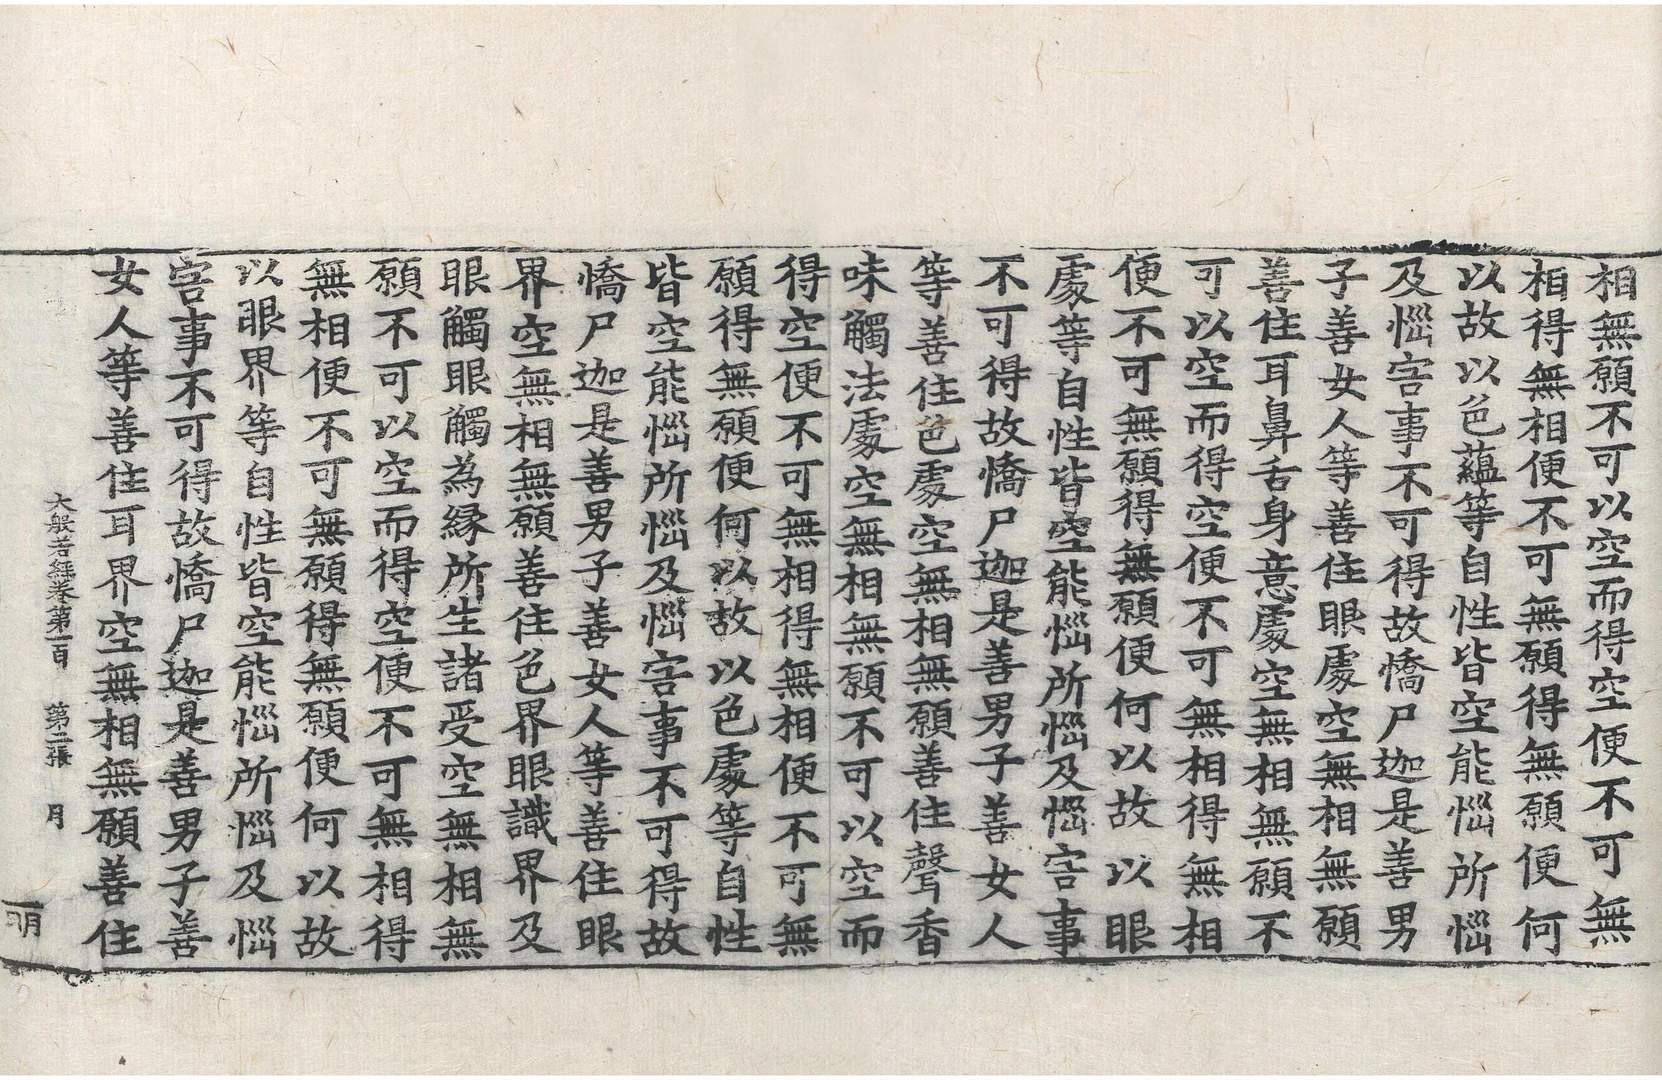 相無願不可以空而得空便不可無
相得無相便不可無願得無願便何
以故以色蘊等自性皆空能惱所惱
及惱害事不可得故憍尸迦是善男
子善女人等善住眼處空無相無願
善住耳鼻舌身意處空無相無願不
可以空而得空便不可無相得無相
便不可無願得無願便何以故以眼
處等自性皆空能惱所惱及惱害事
不可得故憍尸迦是善男子善女人
等善住色處空無相無願善住聲香
味觸法處空無相無願不可以空而
得空便不可無相得無相便不可無
願得無願便何以故以色處等自性
皆空能惱所惱及惱害事不可得故
憍尸迦是善男子善女人等善住眼
界空無相無願善住色界眼識界及
眼觸眼觸為縁所生諸受空無相無
願不可以空而得空便不可無相得
無相便不可無願得無願便何以故
以眼界等自性皆空能惱所惱及惱
害事不可得故憍尸迦是善男子善
女人等善住耳界空無相無願善住
大般若経卷第一百 第二張 月